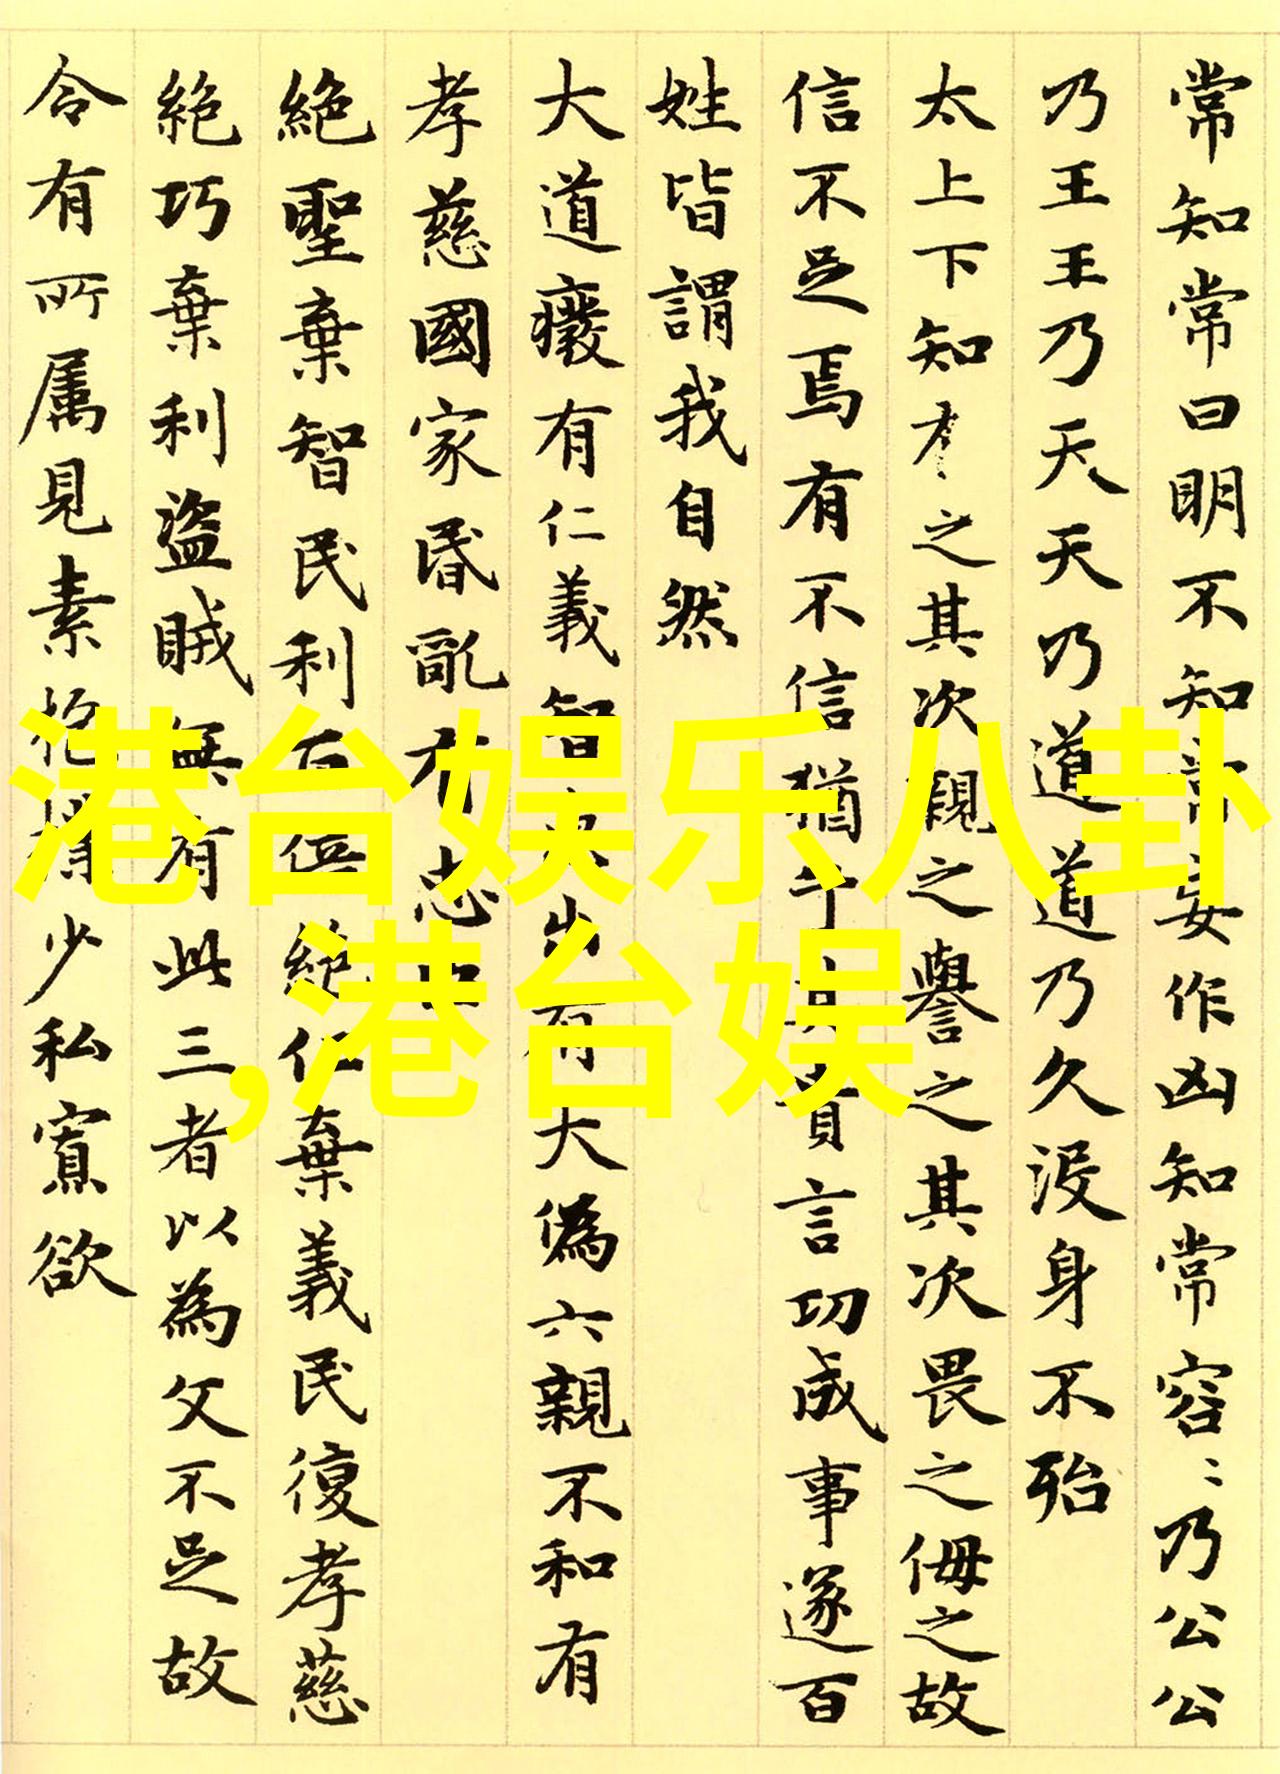 常知常曰明不知知常妄作凶知常容〻乃公公
乃王王乃天天乃道道乃久没身不殆
太上下知有之其次親之譽之其次畏之侮之故
信不足焉有不信猶乎其貴言功成事遂百
姓皆謂我自然
大道癈有仁義智出有大偽六親不和有
孝慈國家昏亂有忠
絶聖棄智民利百倍絶仁棄義民復孝慈
絶巧棄利盜賊無有此三者以為文不足故
令有所属見素抱樸少私寡欲
港台娱乐八卦
,港台娱